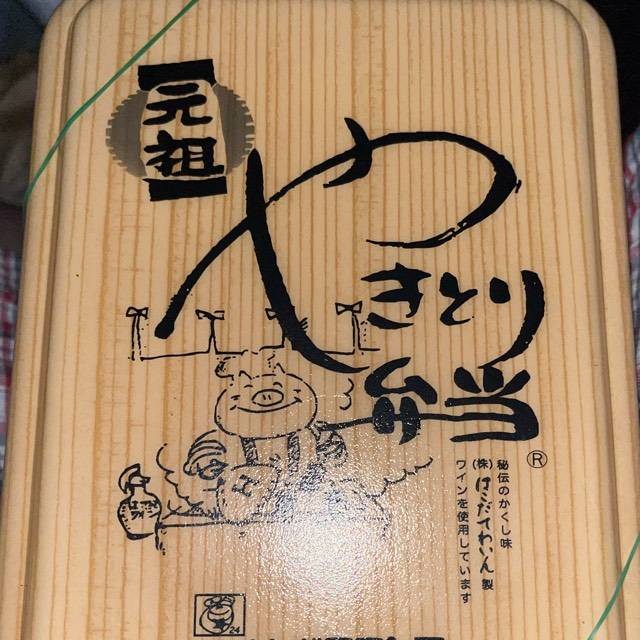 元祖
やきとり
弁当
®
秘伝のかくし味
(株)はこだてわいん製
ワインを使用しています
24